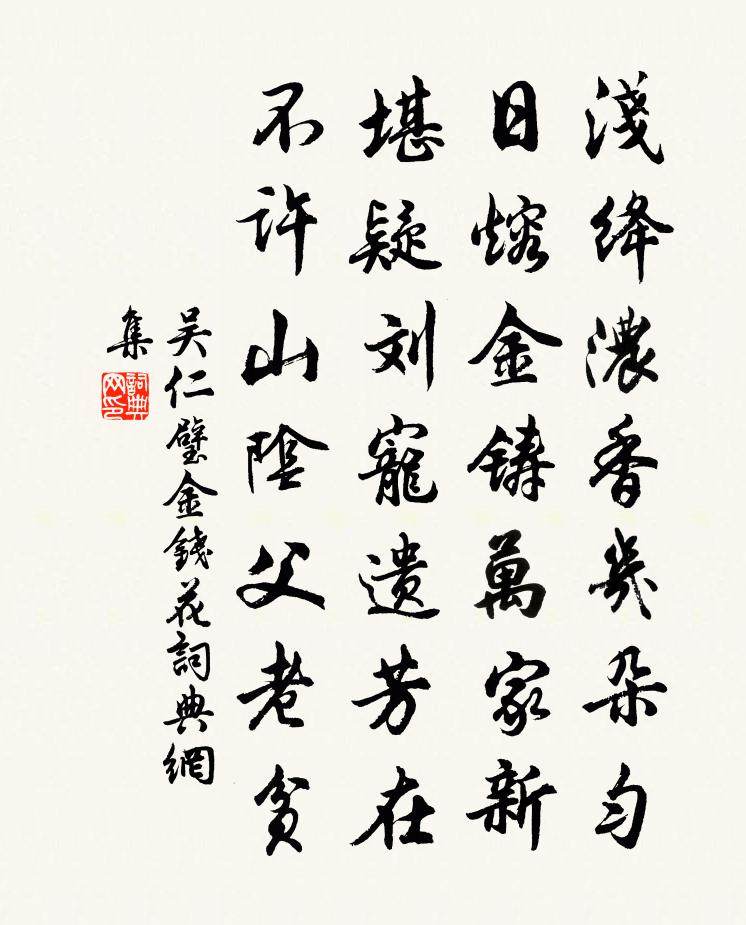 淺絳濃香幾朵勻
日熔金鑄萬家新
堪疑刘寵遗芳在
不许山陰父老貧
吴仁璧金錢花詞典網
集
詞典网印